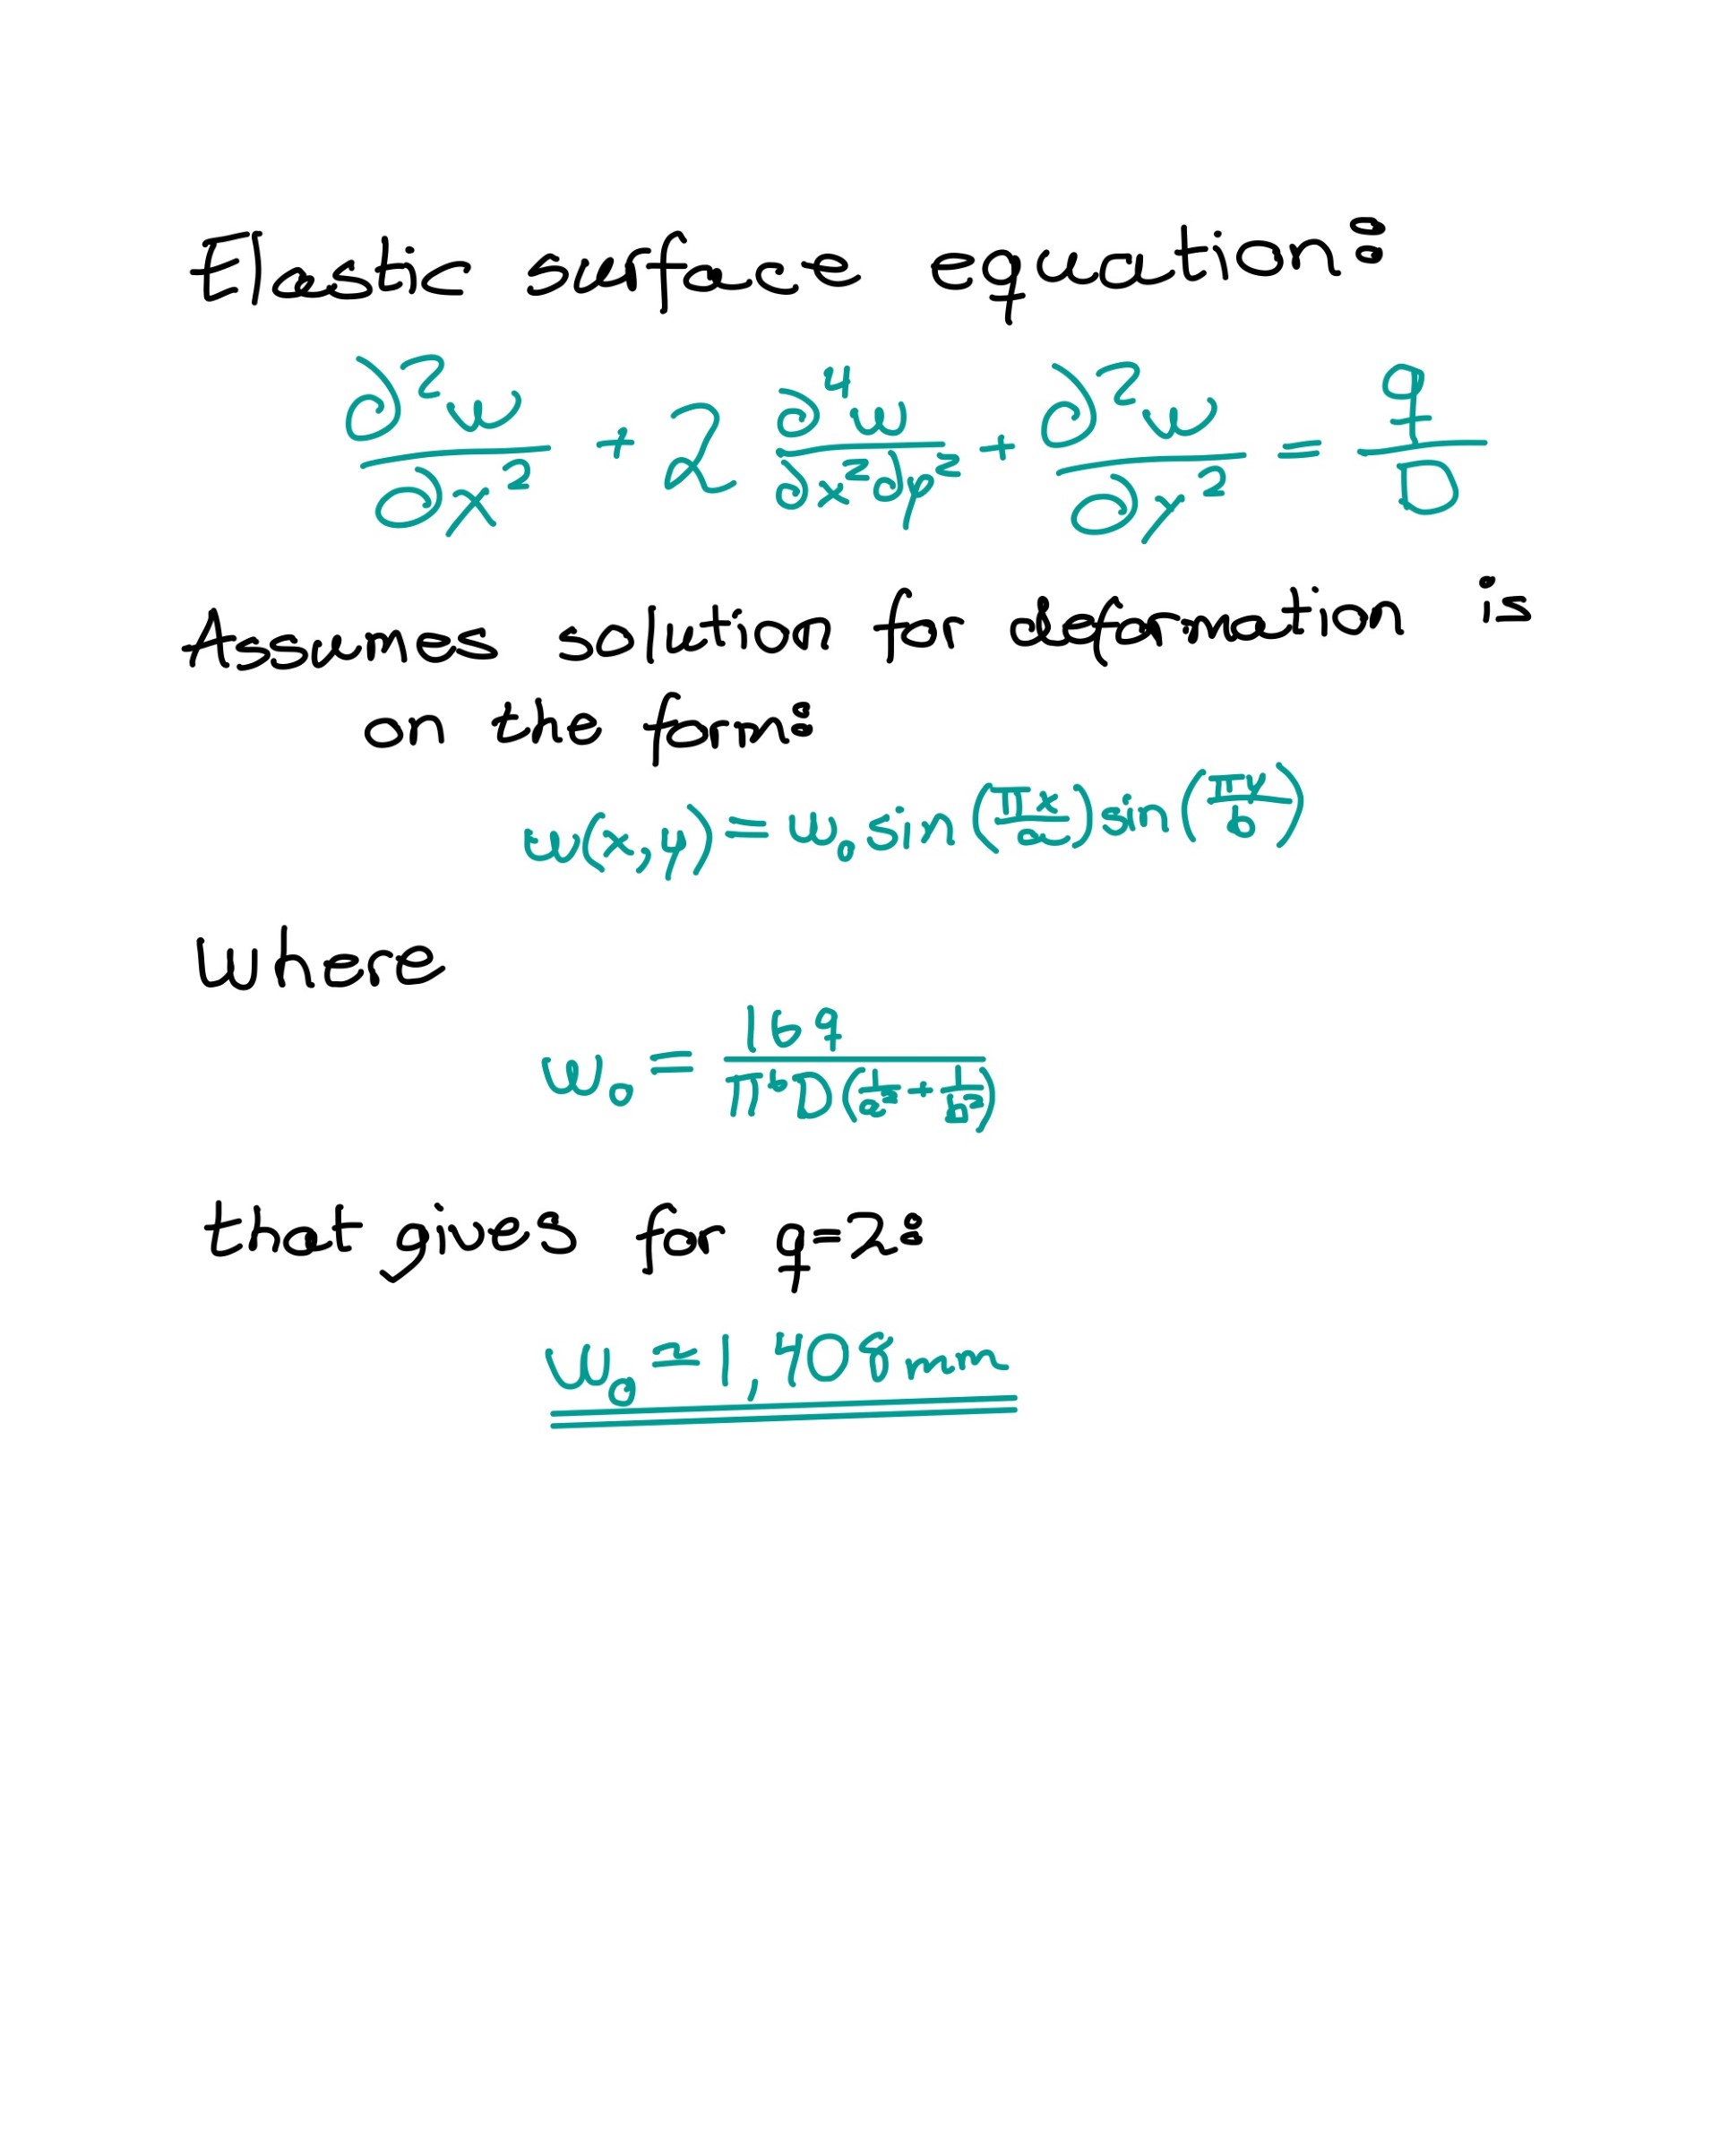 Elastic surface equation:
∂²w/∂x² + 2 ∂⁴w/∂x²∂y² + ∂²w/∂y² = q/D
Assumes solution for deformation is
on the form:
w(x,y) = w₀ sin(πx/a) sin(πy/b)
Where
w₀ = 16q/π⁶D(1/a² + 1/b²)
that gives for q=2:
w₀ ≃ 1,408mm